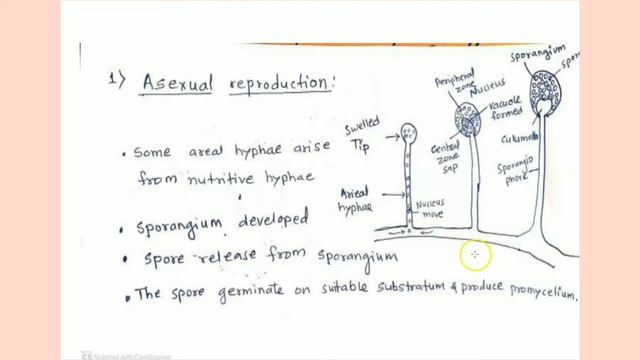 1) Asexual reproduction:
• Some areal hyphae arise
from nutritive hyphae
• Sporangium developed
• Spore release from sporangium
• The spore germinate on suitable substratum & produce promycelium.
Swelled
Tip
Arieal
hyphae
Nucleus
move
Peripheral
zone
Nucleus
Vacuole
formed
Central
zone
sap
Sporangium
Spor
Columella
Sporangio
phore
CS Scanned with CamScanner